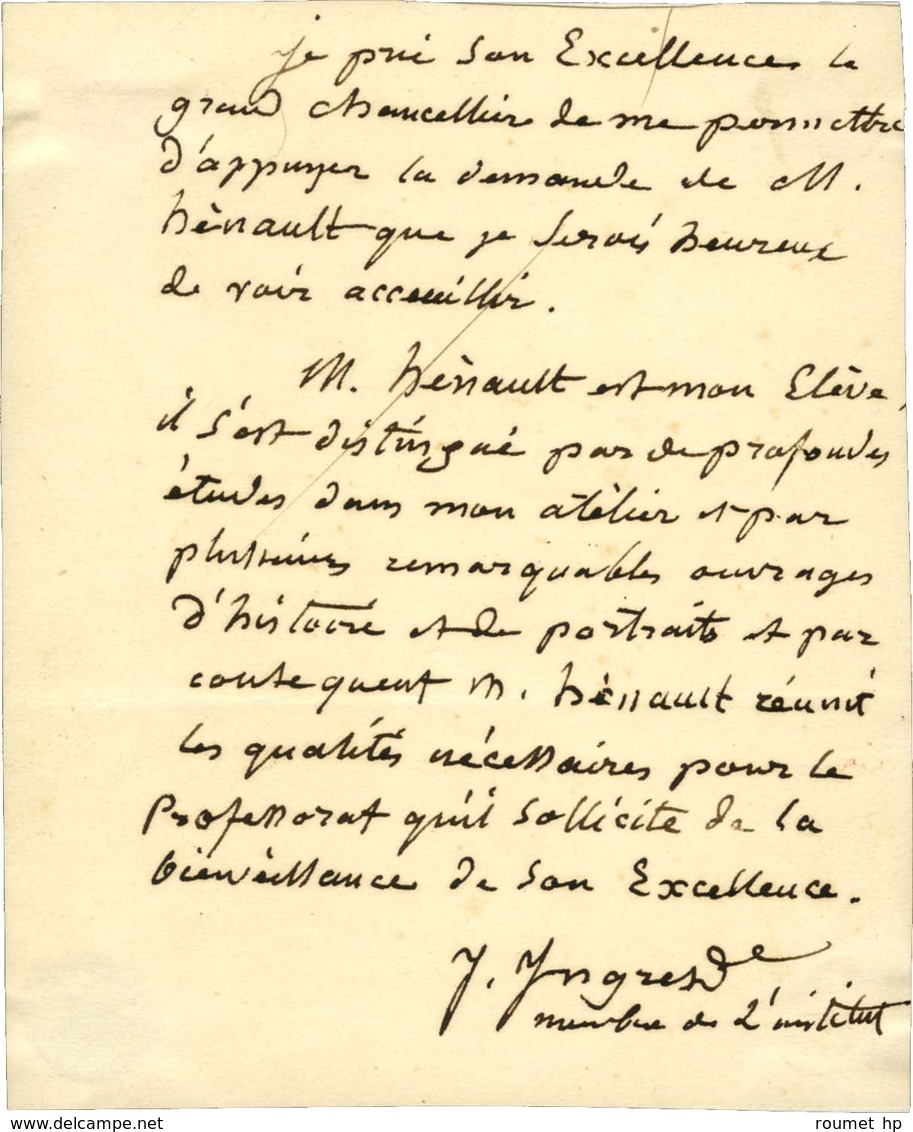 je prie Son Excellence le
grand Chancellier de me permettre
d'appuyer la demande de M.
hènault que je serois heureux
de voir acceuillir.
M. hènault est mon Elève,
il s'est distingué par de profondes
études dans mon atèlier et par
plusieurs remarquables ouvrages
d'histoire et de portraits et par
consequent M. hènault réunit
les qualités nécessaires pour le
Professorat qu'il sollicite de la
bienvèillance de Son Excellence.
J. Ingres
membre de L'institut
roumet hp